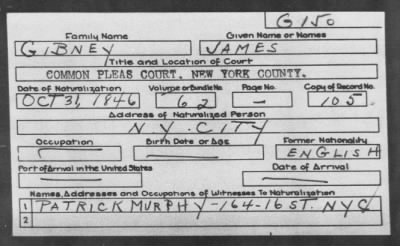 G150
Family Name Given Name or Names
GIBNEY JAMES
Title and Location of Court
COMMON PLEAS COURT, NEW YORK COUNTY.
Date of Naturalization Volume or Bundle No. Page No. Copy of Record No.
OCT 31, 1846 62 — 105
Address of Naturalized Person
N.Y. CITY
Occupation Birth Date or Age Former Nationality
ENGLISH
Port of Arrival in the United States Date of Arrival
Names, Addresses and Occupations of Witnesses To Naturalization
1 PATRICK MURPHY-164-16 ST. NYC
2